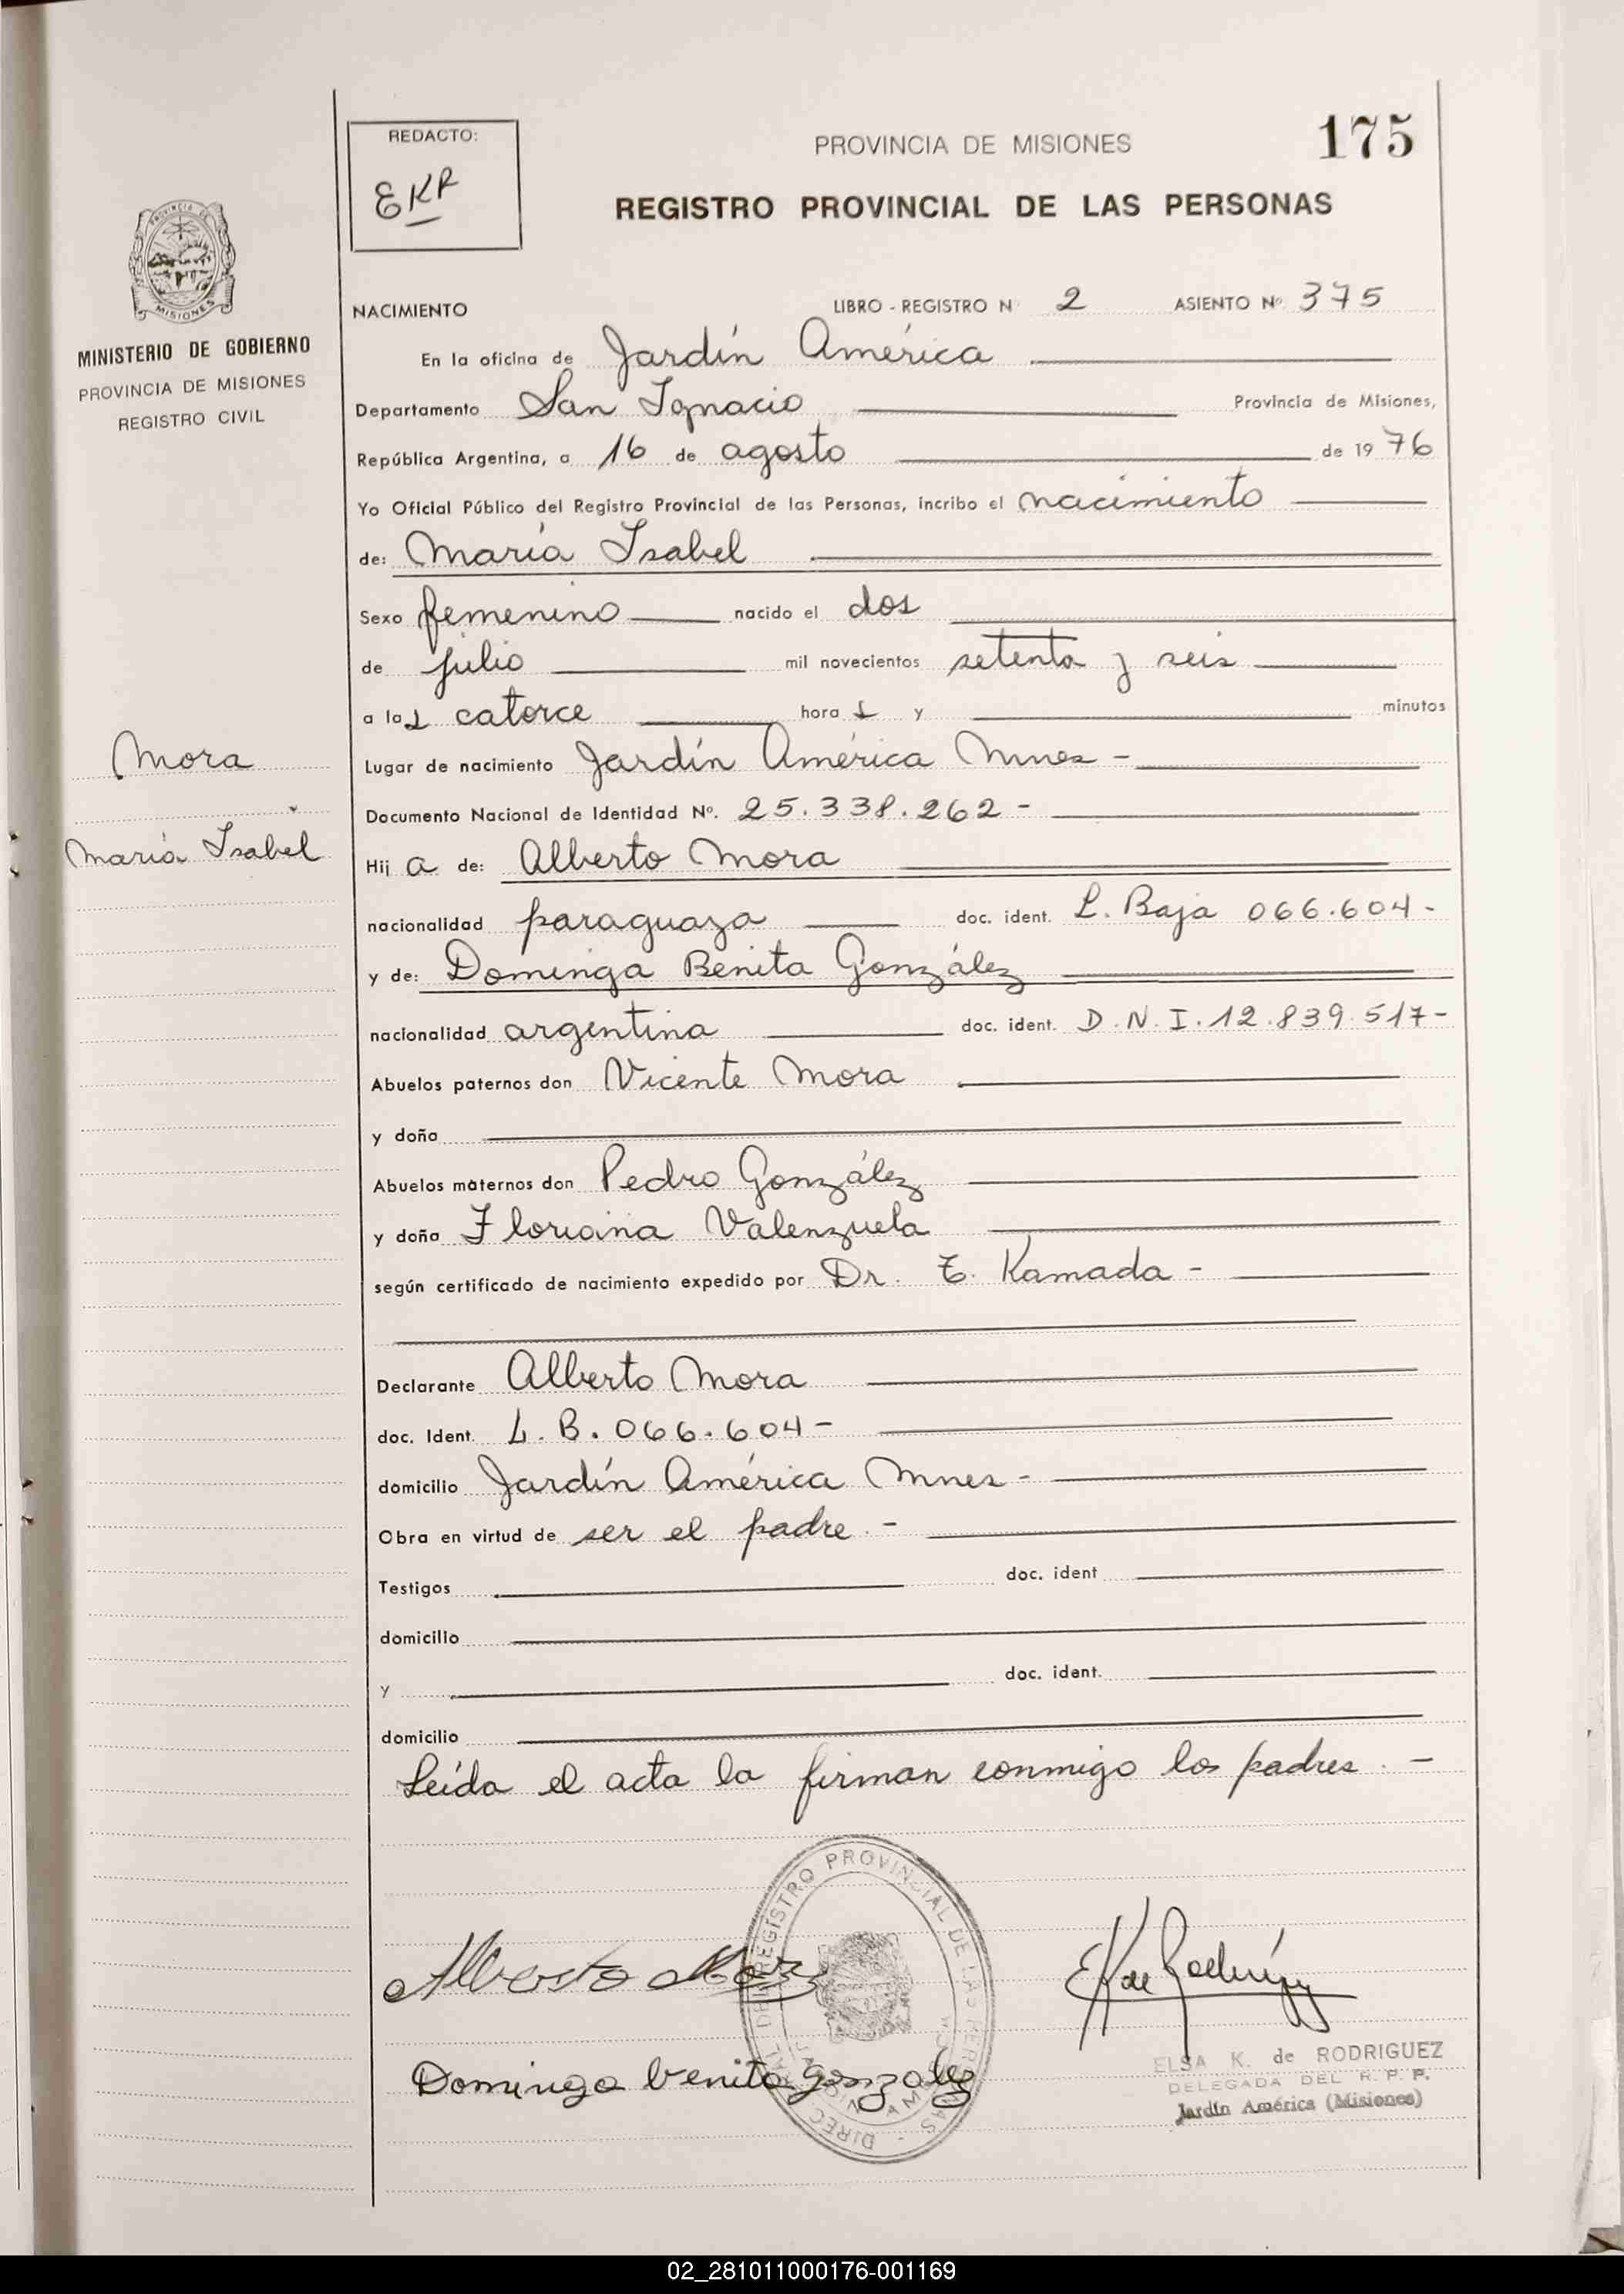 175
REDACTO:
EKR
PROVINCIA DE MISIONES
REGISTRO PROVINCIAL DE LAS PERSONAS
PROVINCIA DE
MISIONES
MINISTERIO DE GOBIERNO
PROVINCIA DE MISIONES
REGISTRO CIVIL
Mora
María Isabel
NACIMIENTO LIBRO - REGISTRO N 2 ASIENTO Nº 375
En la oficina de Jardín América
Departamento San Ignacio Provincia de Misiones,
República Argentina, a 16 de agosto de 1976
Yo Oficial Público del Registro Provincial de las Personas, incribo el nacimiento
de: María Isabel
Sexo femenino nacido el dos
de julio mil novecientos setenta y seis
a las catorce hora s y minutos
Lugar de nacimiento Jardín América Mnes -
Documento Nacional de Identidad Nº. 25.338.262 -
Hij a de: Alberto Mora
nacionalidad paraguaya doc. ident. L. Baja 066.604 -
y de: Dominga Benita González
nacionalidad argentina doc. ident. D.N.I. 12.839.517 -
Abuelos paternos don Vicente Mora
y doña
Abuelos maternos don Pedro González
y doña Floriana Valenzuela
según certificado de nacimiento expedido por Dr. T. Kamada -
Declarante Alberto Mora
doc. Ident. L. B. 066.604 -
domicilio Jardín América Mnes -
Obra en virtud de ser el padre . -
Testigos doc. ident
domicilio
y doc. ident.
domicilio
Leída el acta la firman conmigo los padres . -
REGISTRO PROVINCIAL DE LAS PERSONAS
Alberto Mora
EK de Rodríguez
Dominga benita gonzalez
ELSA K. de RODRIGUEZ
DELEGADA DEL R. P. P.
Jardín América (Misiones)
02_281011000176-001169